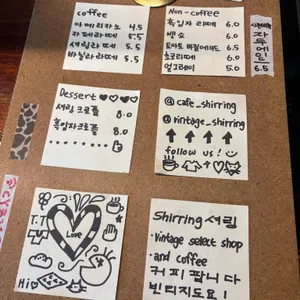 coffee
아메리카노 4.5
카페라떼 5.5
셔링라떼 5.5
바닐라라떼 5.5
Non-coffee
흑임자 라떼 6.0
뱅쇼 6.0
토마토 바질에이드 6.5
초코라떼 6.0
얼그레이 5.0
자두에일
6.5
Dessert
셔링 크로플 8.0
흑임자크로플 8.0
@cafe_shirring
@vintage_shirring
follow us!
T.T
Love
Hi
Shirring 셔링
·vintage select shop
·and coffee
커피 팝니다
빈티지도요!